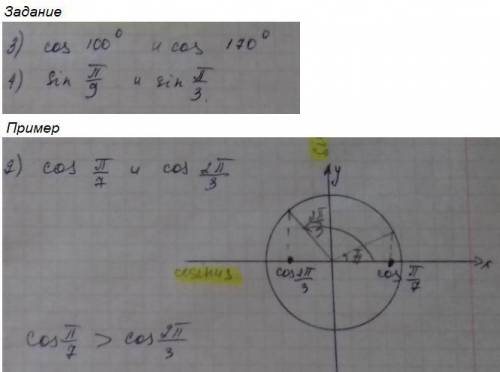 Задание
3) cos 100° и cos 170°
4) sin π/9 и sin π/3.
Пример
2) cos π/7 и cos 2π/3
y
2π/3
x
cosinus
cos 2π/3
cos π/7
cos π/7 > cos 2π/3